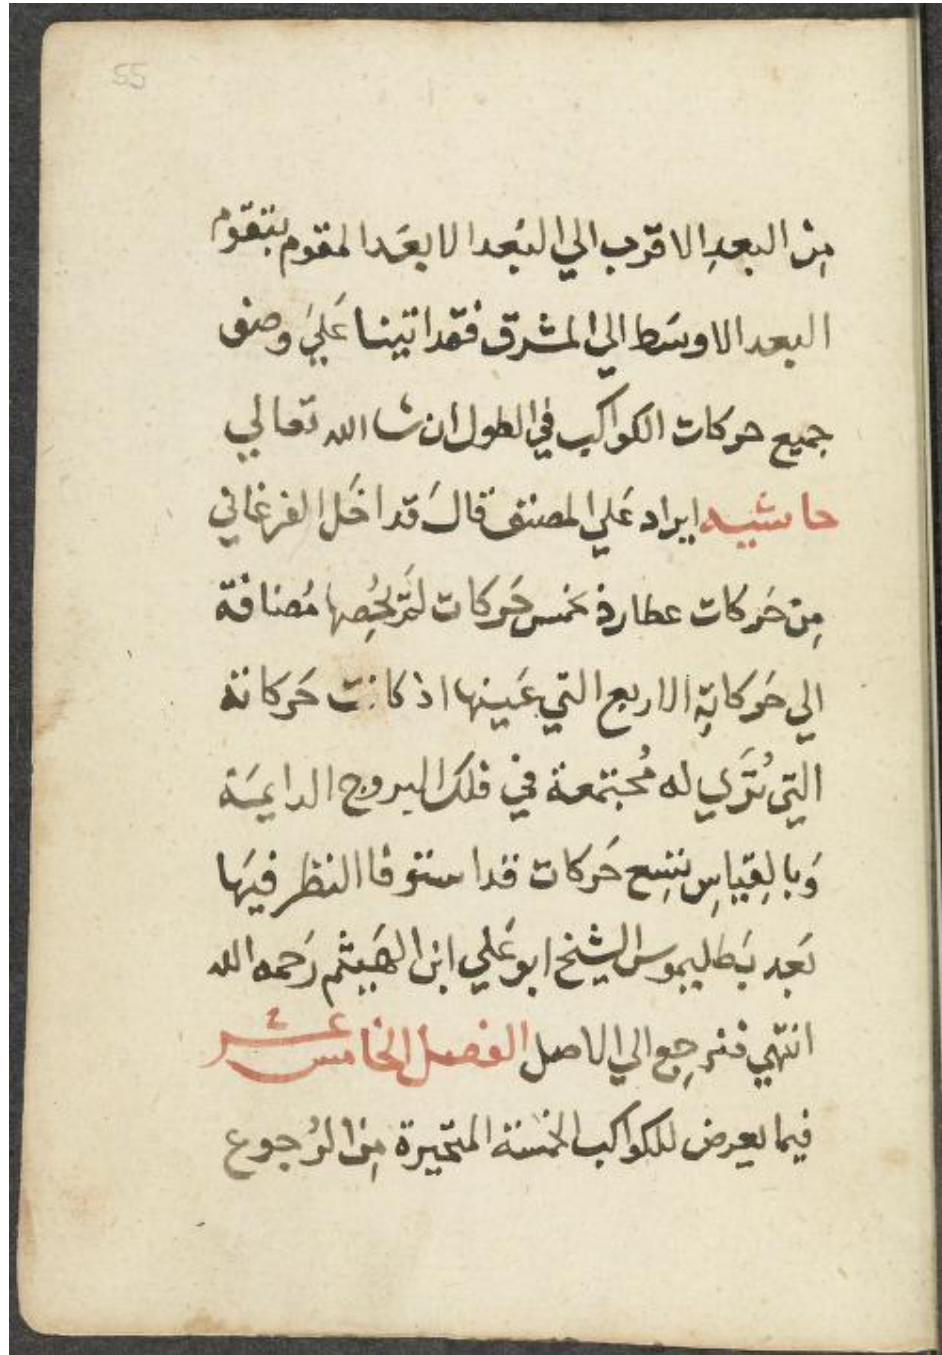 55
مِنْ البعدِ الاقرب الي البُعد الابعَد المقوم بتقوّم
البعد الاوسَط الي المشرق فقد اتينا عَليَ وصف
جميع حركات الكواكب في الطول ان شا الله تعالي
حاشيه ايراد عَلي المصنف قالَ قد اخَل الفرغاني
مِنْ حَركات عطارد خمس حَركات لَمْ يُحصِها مُضافة
الي حَركاتِهِ الاربع التي عَينها اذ كانت حَركاته
التي تُرَي له مُجتمعة في فلك البروج الدايمَة
وَبالقِيَاسِ تِسع حَركات قد استوفا النظر فيهَا
بَعد بَطليموس الشيخ ابو عَلي ابن الهَيثم رَحمه الله
انتهي فنرجِع الي الاصل الفصل الخامس عشر
فيما يعرض للكواكب الخمسَة المتحيرة مِنْ الرُجوع